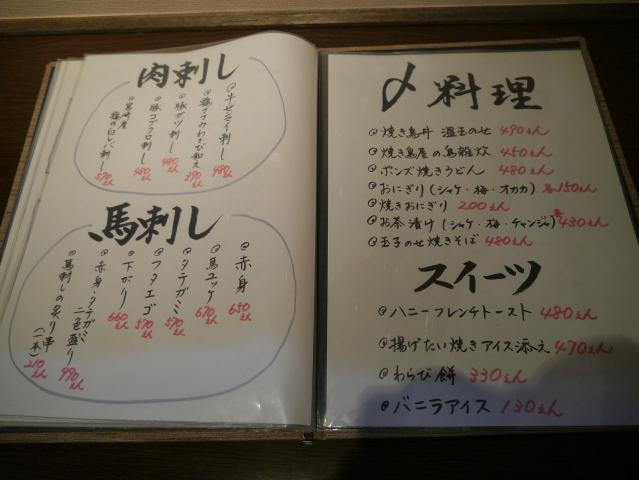 肉刺し
牛センマイ刺し 480えん
鶏ささみわさび和え 390えん
豚ガツ刺し 480えん
豚コブクロ刺し 480えん
宮崎産
鶏の白レバ刺し 570えん
馬刺し
赤身 650えん
馬ユッケ 670えん
タテガミ 570えん
フタエゴ 570えん
下がり 660えん
赤身・タテガミ
二色盛り 990えん
馬刺しの炙り串
(一本) 210えん
〆料理
焼き鳥丼 温玉のせ 490えん
焼き鳥屋の鳥雑炊 450えん
ポンズ焼きうどん 480えん
おにぎり(シャケ・梅・オカカ) 各150えん
焼きおにぎり 200えん
お茶漬け(シャケ・梅・チャンジャ) 各430えん
玉子のせ焼きそば 480えん
スイーツ
ハニーフレンチトースト 480えん
揚げたい焼きアイス添え 470えん
わらび餅 330えん
バニラアイス 130えん